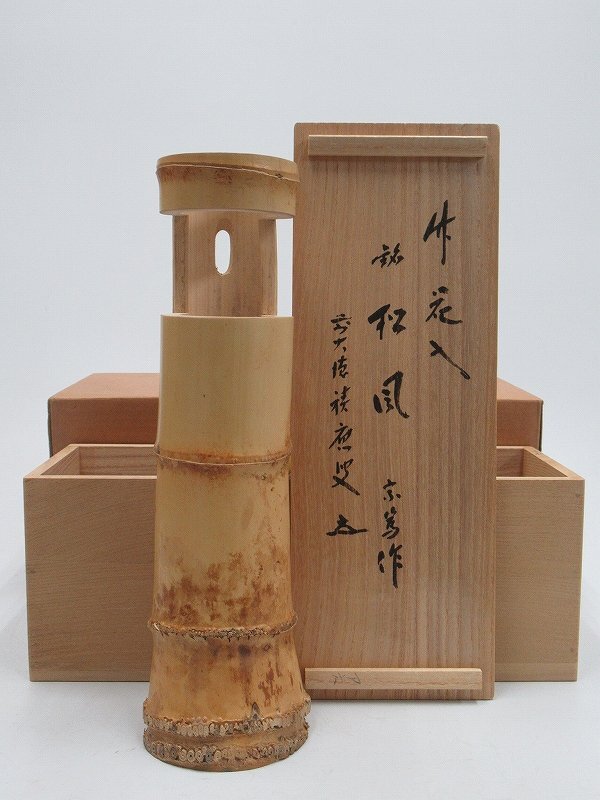 竹花入
銘 松風 宗篤作
前大徳積應叟